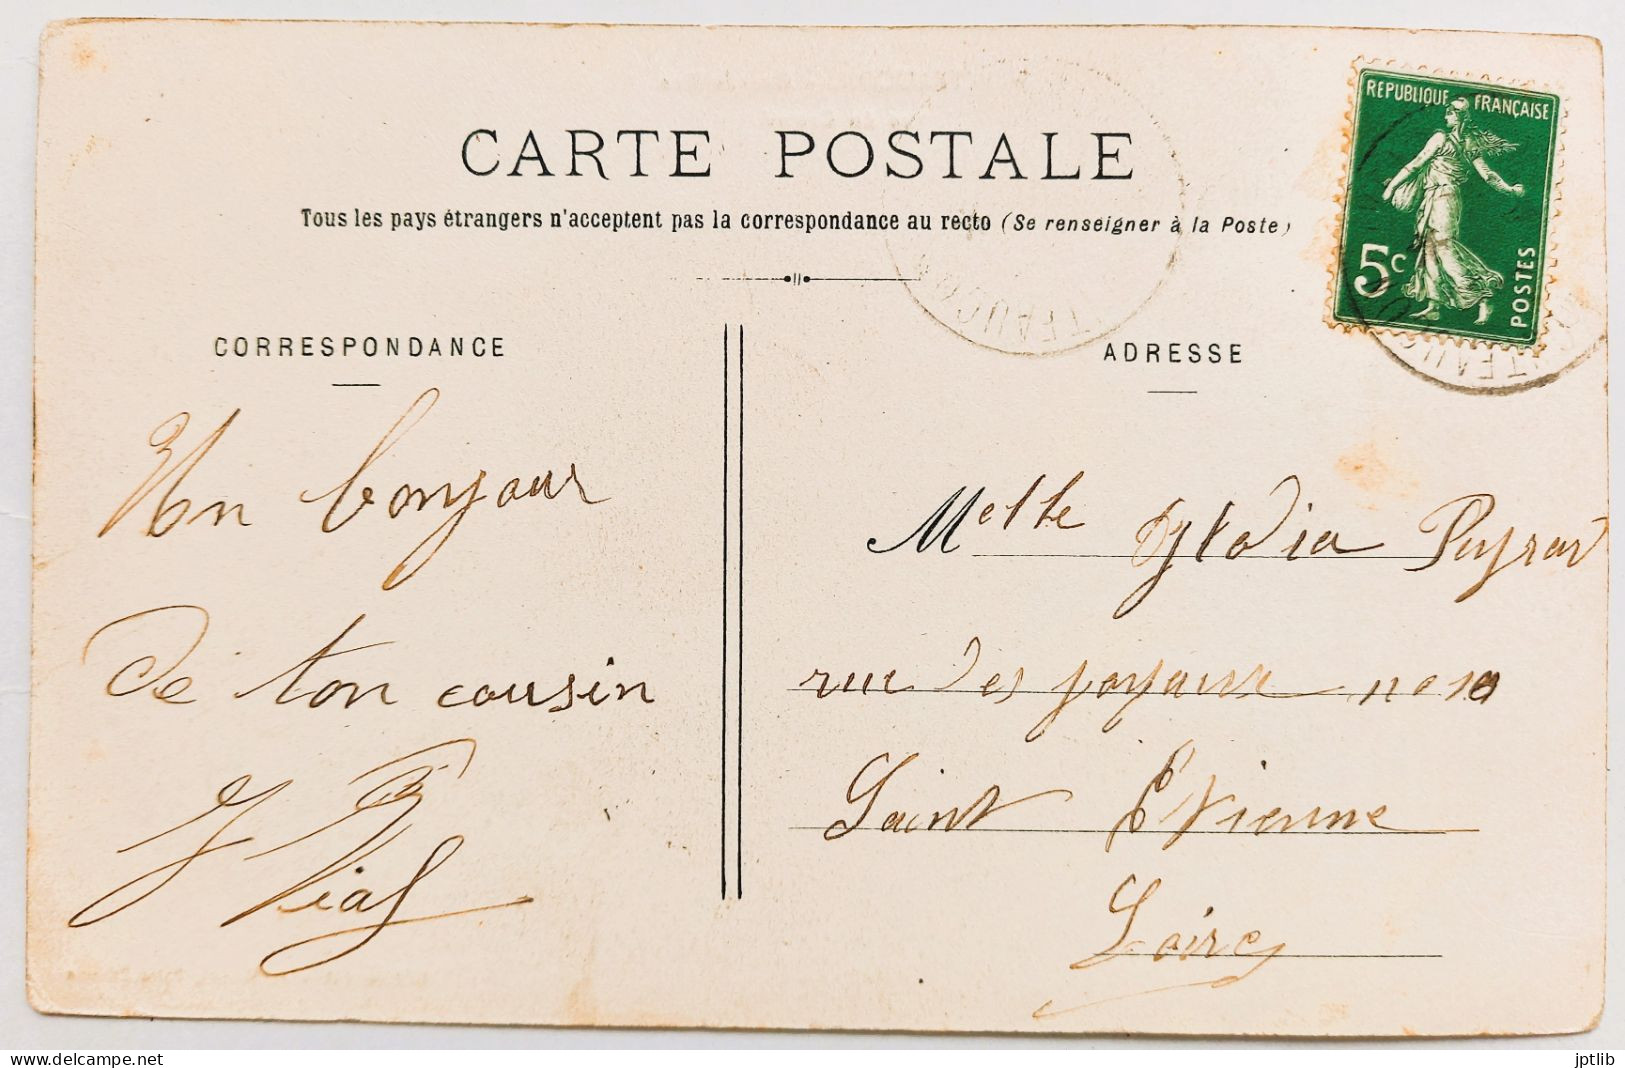 CARTE POSTALE
Tous les pays étrangers n'acceptent pas la correspondance au recto (Se renseigner à la Poste)
REPUBLIQUE FRANÇAISE
5c
POSTES
CORRESPONDANCE
ADRESSE
Un bonjour
de ton cousin
J Vial
Melle Sylvia Peyrar
rue des joyaux no 10
Saint Etienne
Loire
jptlib